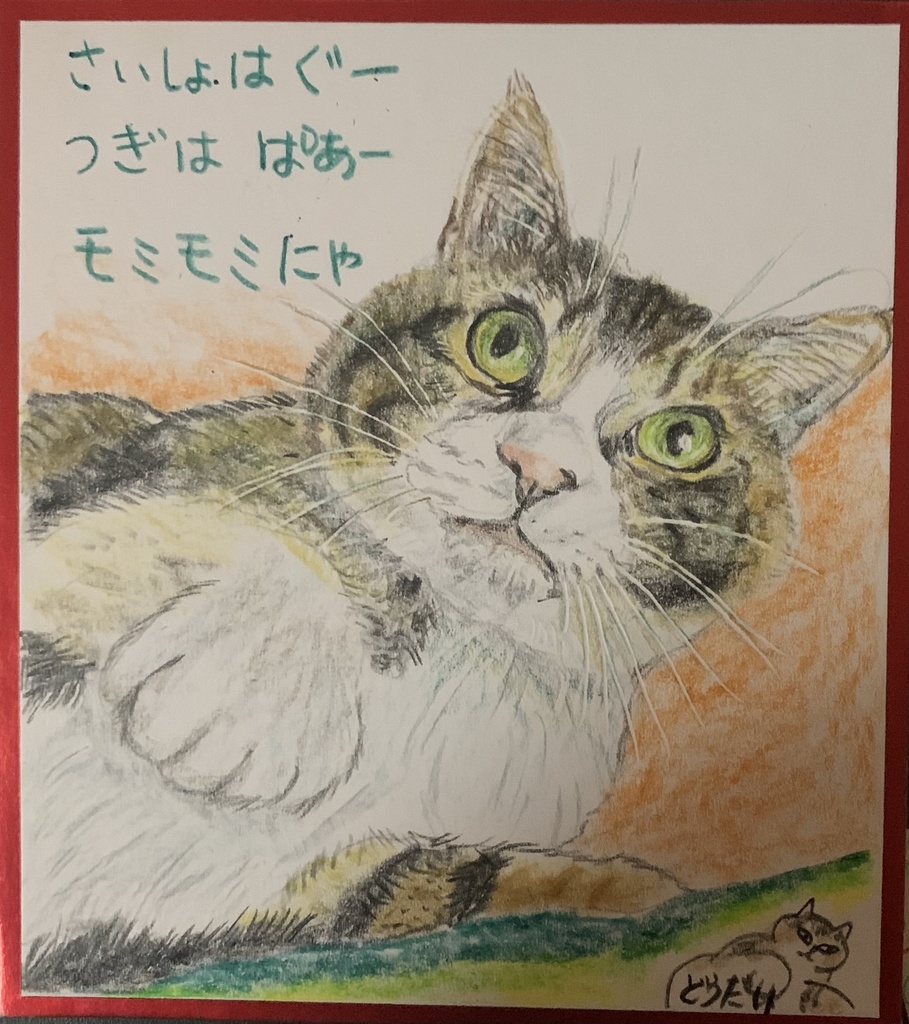 さいしょはぐー
つぎは ぱあー
モミモミにゃ
どらだけ